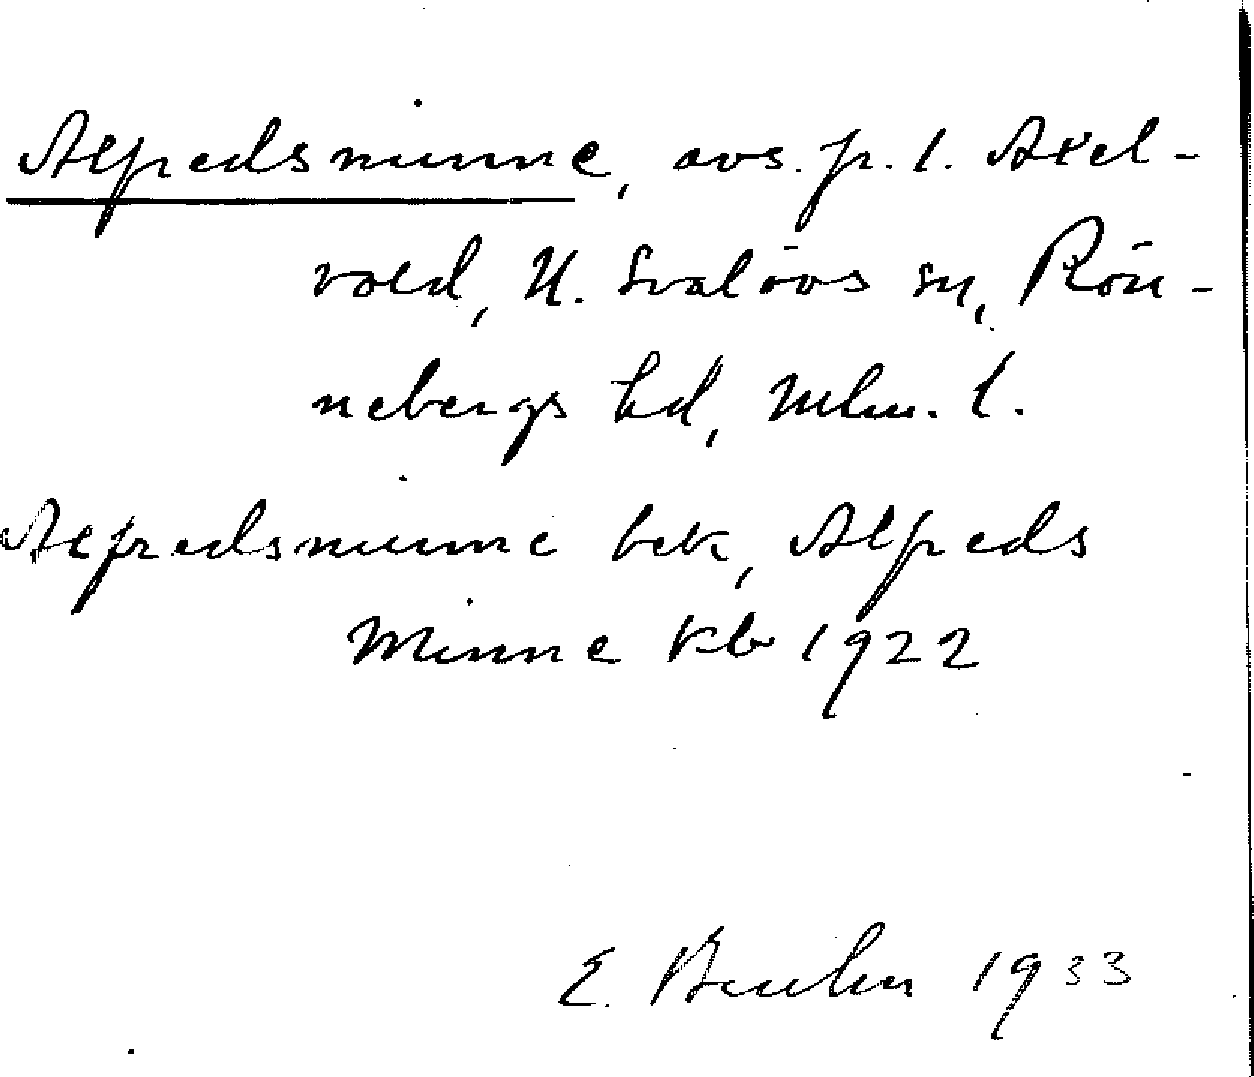 Alfredsminne, avs. fr. 1. Axel-
vold, N. Svalövs sn, Rön-
nebergs hd, Mlm. l.
Alfredsminne bek, Alfreds
Minne kb 1922
E. 1933